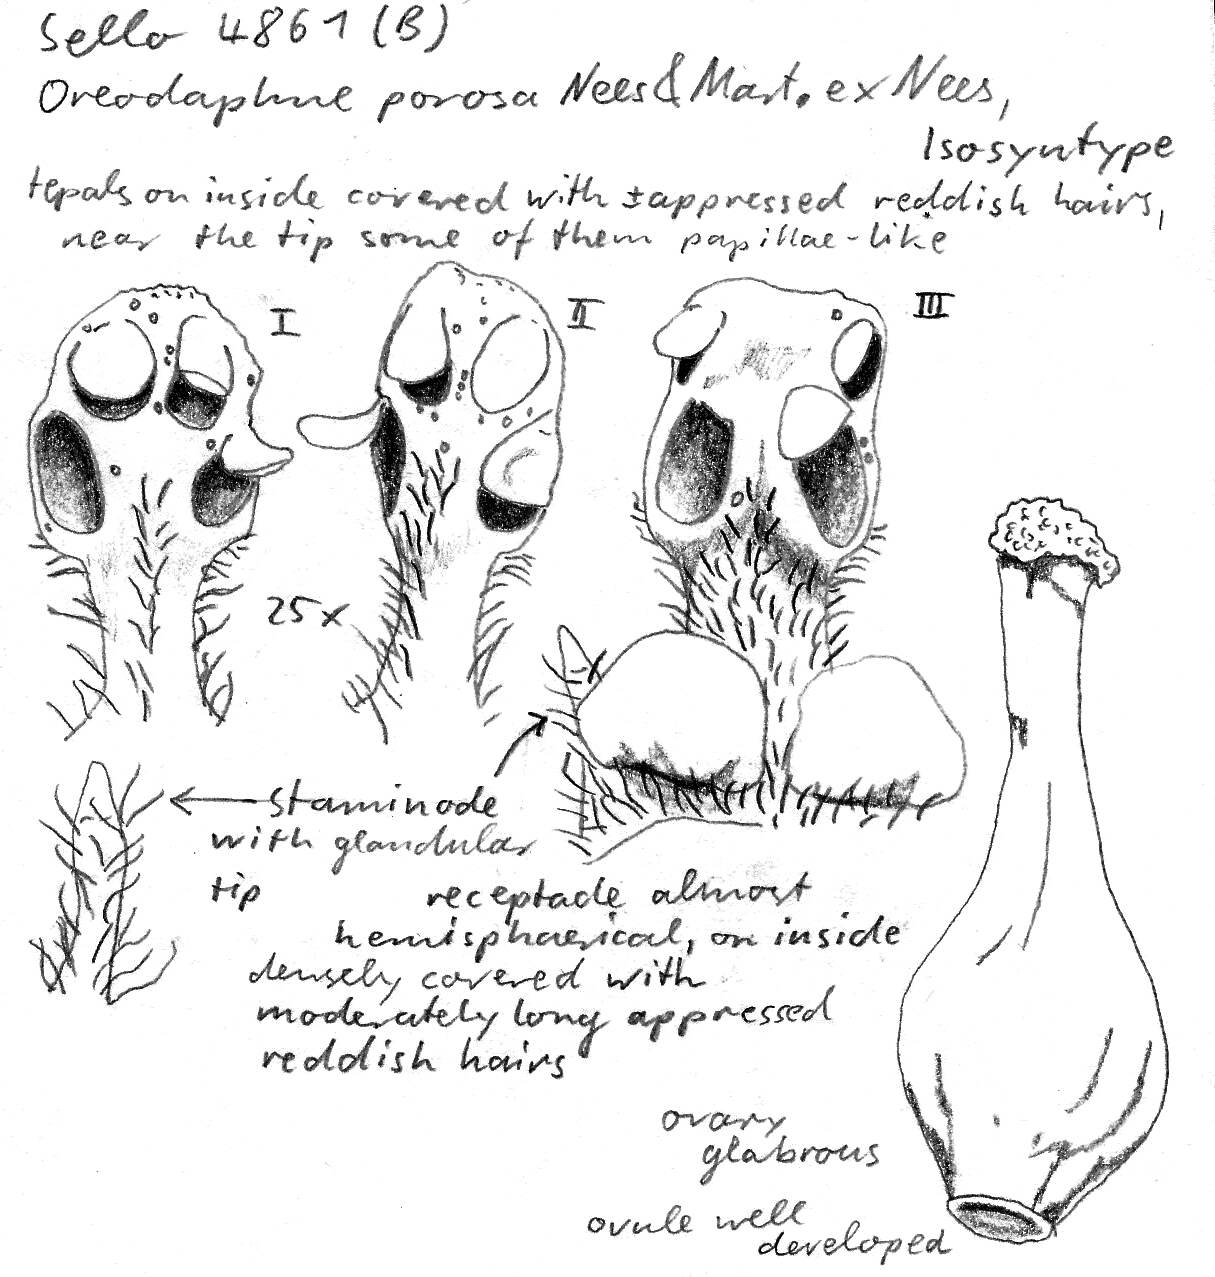 Sello 4861 (B)
Oreodaphne porosa Nees & Mart. ex Nees,
Isosyntype
tepals on inside covered with ± appressed reddish hairs,
near the tip some of them papillae-like
I
II
III
25x
staminode
with glandular
tip
receptacle almost
hemisphaerical, on inside
densely covered with
moderately long appressed
reddish hairs
ovary
glabrous
ovule well
developed